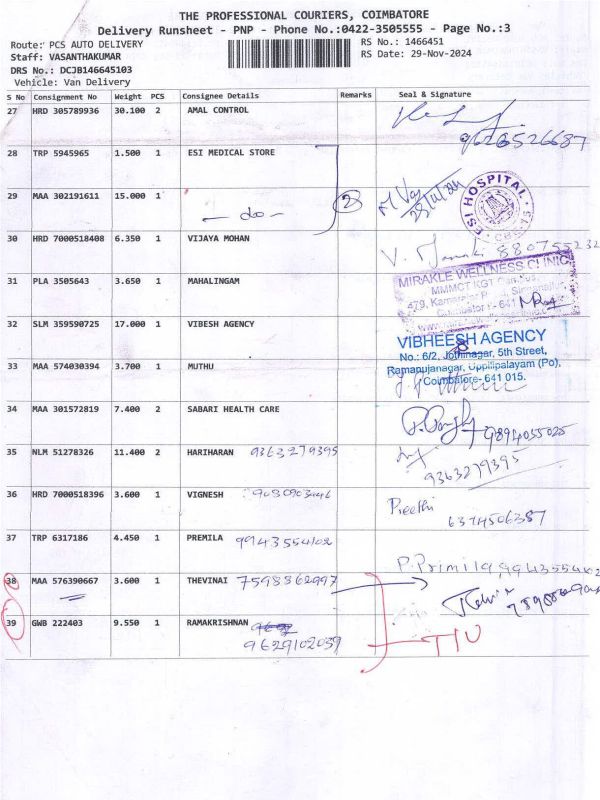 THE PROFESSIONAL COURIERS, COIMBATORE
Delivery Runsheet - PNP - Phone No.:0422-3505555 - Page No.:3
Route: PCS AUTO DELIVERY
RS No.: 1466451
Staff: VASANTHAKUMAR
RS Date: 29-Nov-2024
DRS No.: DCJB146645103
Vehicle: Van Delivery
S No Consignment No Weight PCS Consignee Details Remarks Seal & Signature
27 HRD 305789936 30.100 2 AMAL CONTROL
9626526687
28 TRP 5945965 1.500 1 ESI MEDICAL STORE
29 MAA 302191611 15.000 1 - do - 2
ESI HOSPITAL
30 HRD 7000518408 6.350 1 VIJAYA MOHAN
31 PLA 3505643 3.650 1 MAHALINGAM
MIRAKLE WELLNESS CLINIC
32 SLM 359590725 17.000 1 VIBESH AGENCY
VIBHEESH AGENCY
No.: 6/2, Jothinagar, 5th Street,
Ramanujanagar, Uppilipalayam (Po),
Coimbatore- 641 015.
33 MAA 574030394 3.700 1 MUTHU
34 MAA 301572819 7.400 2 SABARI HEALTH CARE
9894055025
35 NLM 51278326 11.400 2 HARIHARAN 9363279395
9363279395
36 HRD 7000518396 3.600 1 VIGNESH
Preethi
6374506387
37 TRP 6317186 4.450 1 PREMILA 9943554102
P. Primila 9943554102
38 MAA 576390667 3.600 1 THEVINAI 7598862997
39 GWB 222403 9.550 1 RAMAKRISHNAN
9629102039